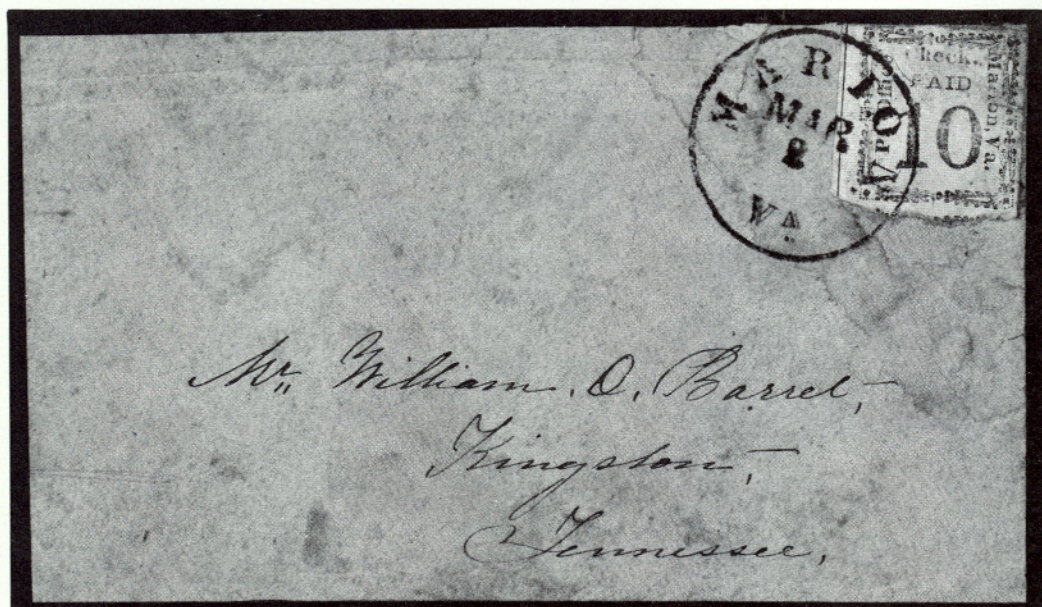 MARION
MAR
2
VA.
Check.
PAID
10
Post Office
Marion, Va.
Mr. William. O. Barret,
Kingston,
Tennessee,